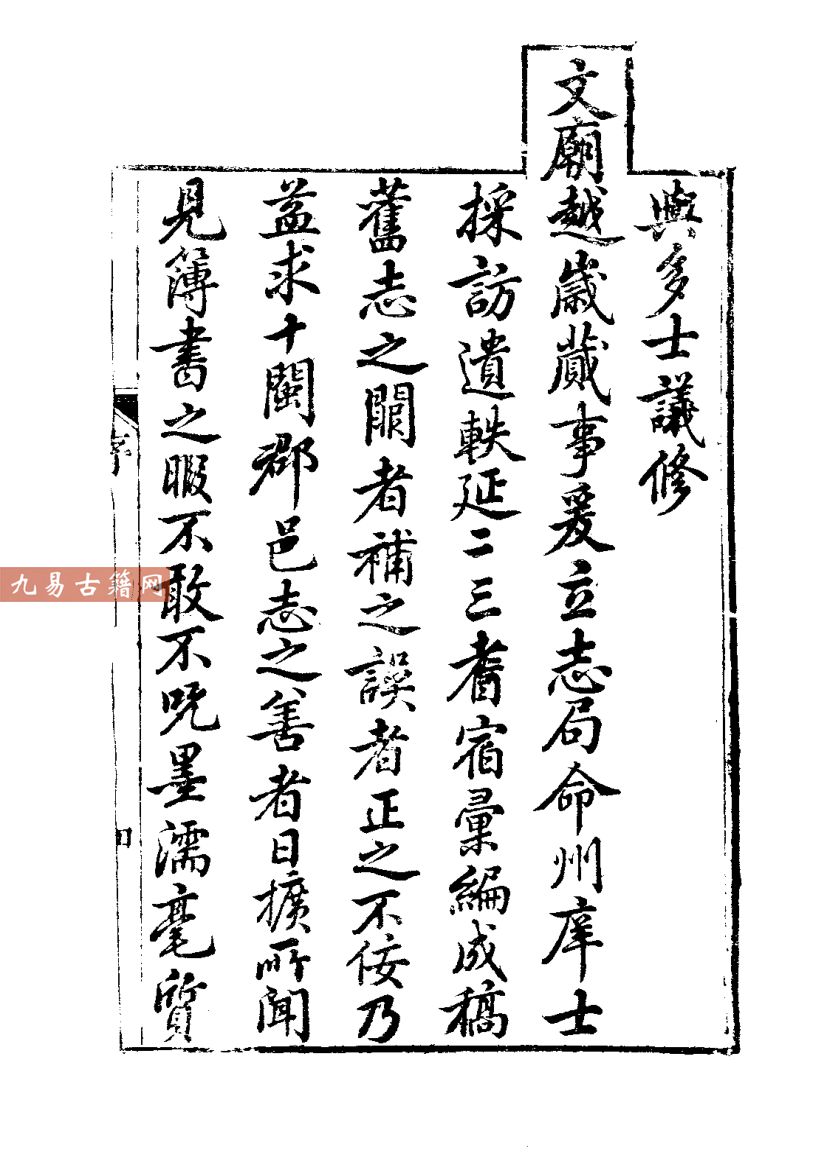 與多士議修
文廟越歲蕆事爰立志局命州庠士
採訪遺軼延二三耆宿彙編成稿
舊志之闕者補之誤者正之不佞乃
益求十閩郡邑志之善者日擴所聞
見簿書之暇不敢不吮墨濡毫質
序
四
九易古籍网